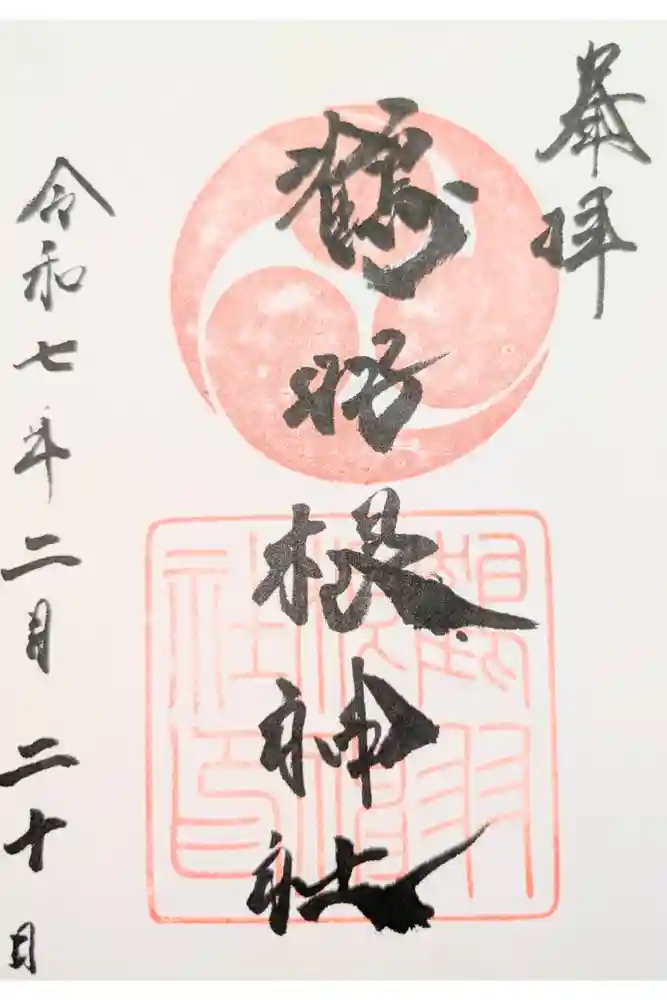 奉拝
鶴羽根神社
令和七年二月二十日
鶴羽
根神
社印